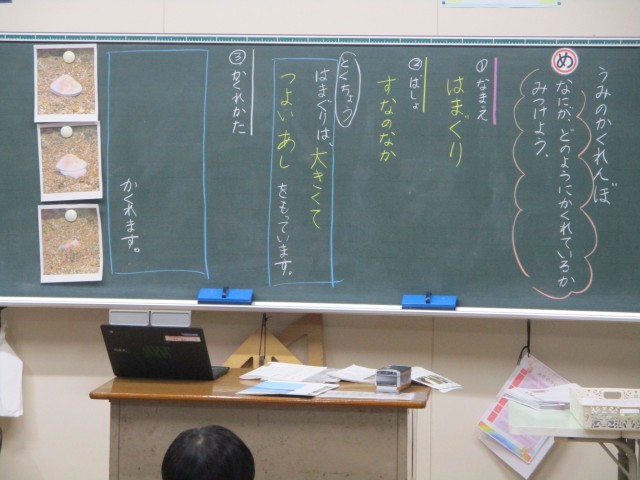 うみのかくれんぼ
め
なにが、どのようにかくれているか
みつけよう。
①なまえ
はまぐり
②ばしょ
すなのなか
とくちょう
はまぐりは、大きくて
つよいあしをもっています。
③かくれかた
かくれます。